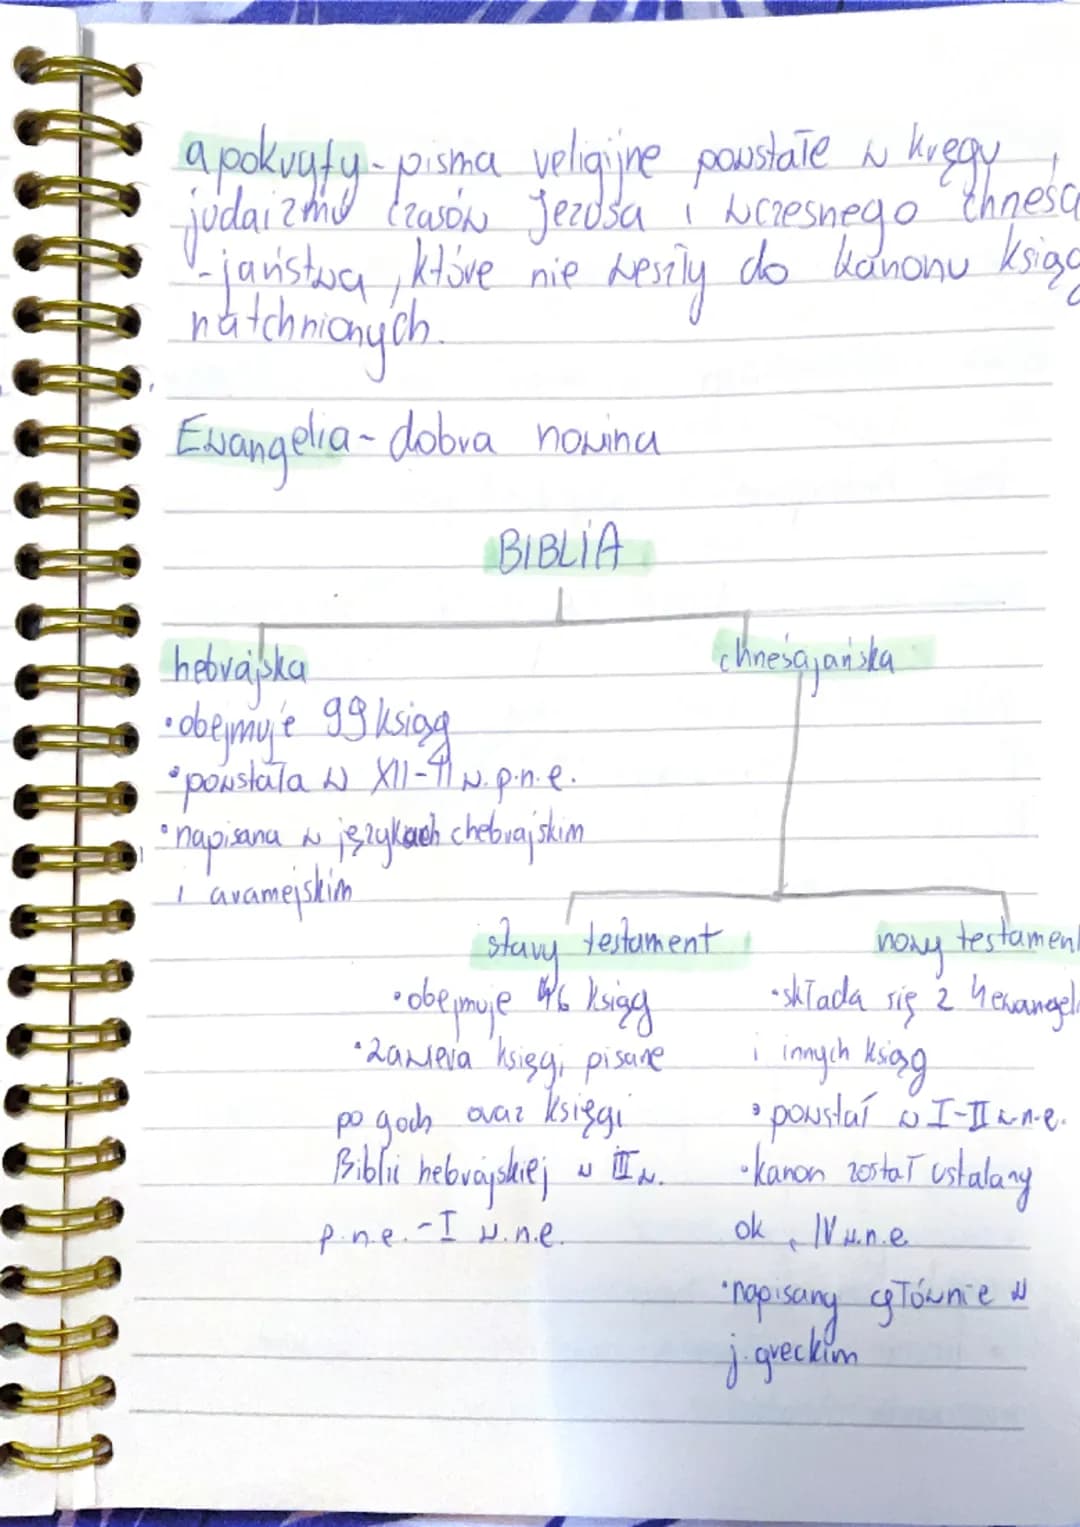 apokryfy - pisma religijne powstałe w kręgu
judaizmu czasów Jezusa i wczesnego chrześci
-jaństwa, które nie weszły do kanonu ksiąg
natchnionych.
Ewangelia - dobra nowina
BIBLIA
hebrajska
chrześcijańska
•obejmuje 99 ksiąg
•powstała w XII-II w. p.n.e.
•napisana w językach chebrajskim
i aramejskim
stary testament
nowy testament
•obejmuje 46 ksiąg
•zawiera księgi pisane
po grch oraz księgi
Biblii hebrajskiej w III w.
p.n.e. - I w.n.e.
•składa się z 4 ewangeli
i innych ksiąg
•powstał w I-II w.n.e.
•kanon został ustalany
ok. IV w.n.e
•napisany głównie w
j. greckim